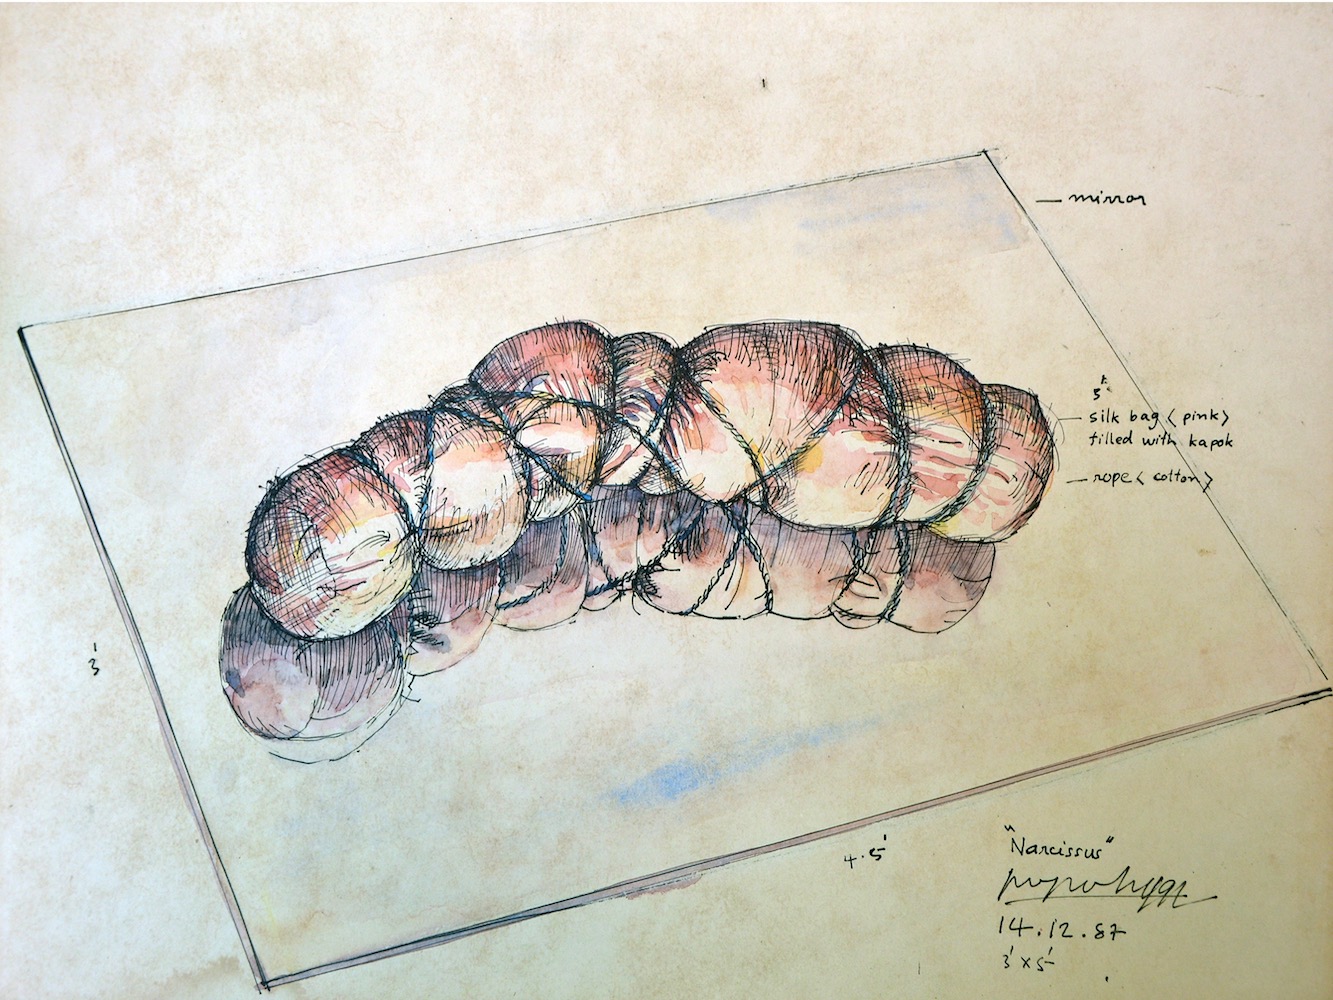 mirror
5'
silk bag < pink >
filled with kapok
rope < cotton >
3'
4.5'
"Narcissus"
14.12.87
3' x 5'